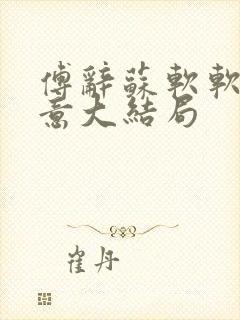 傅辭蘇軟軟
意大結局
崔丹